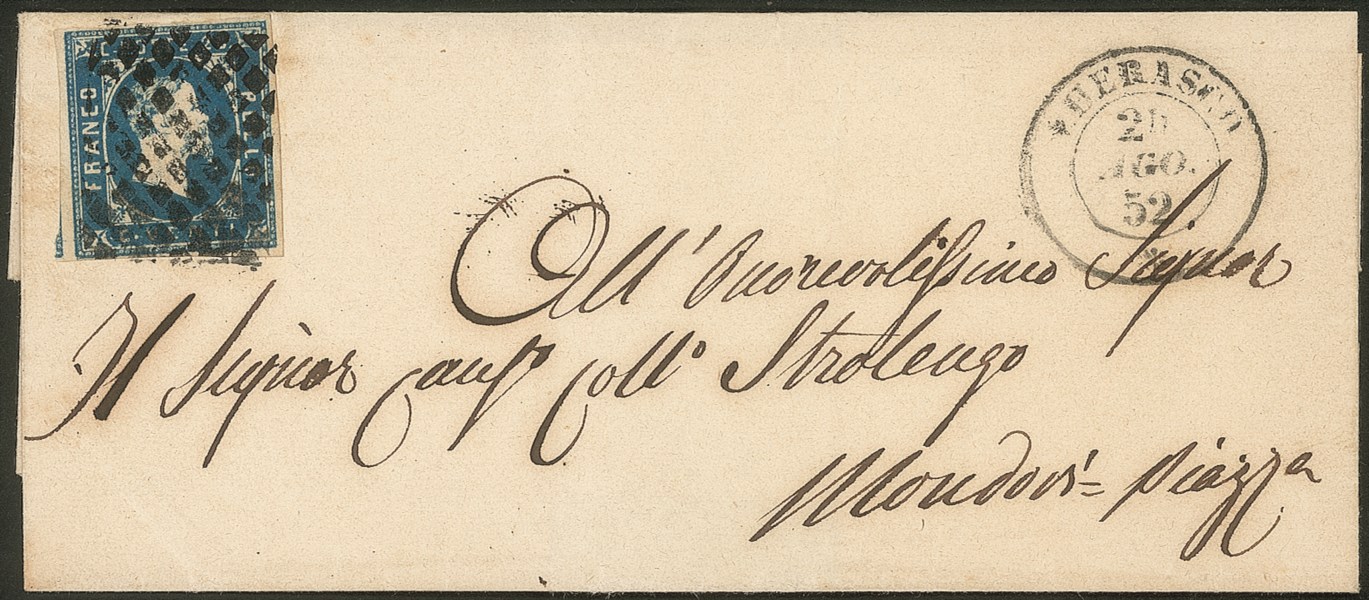 FRANCO
C. VENTI
POSTE
CHERASCO
25
AGO.
52
All' Onorevolissimo Signor
Il Signor Caus.º Coll.º Strolengo
Mondovì = Piazza